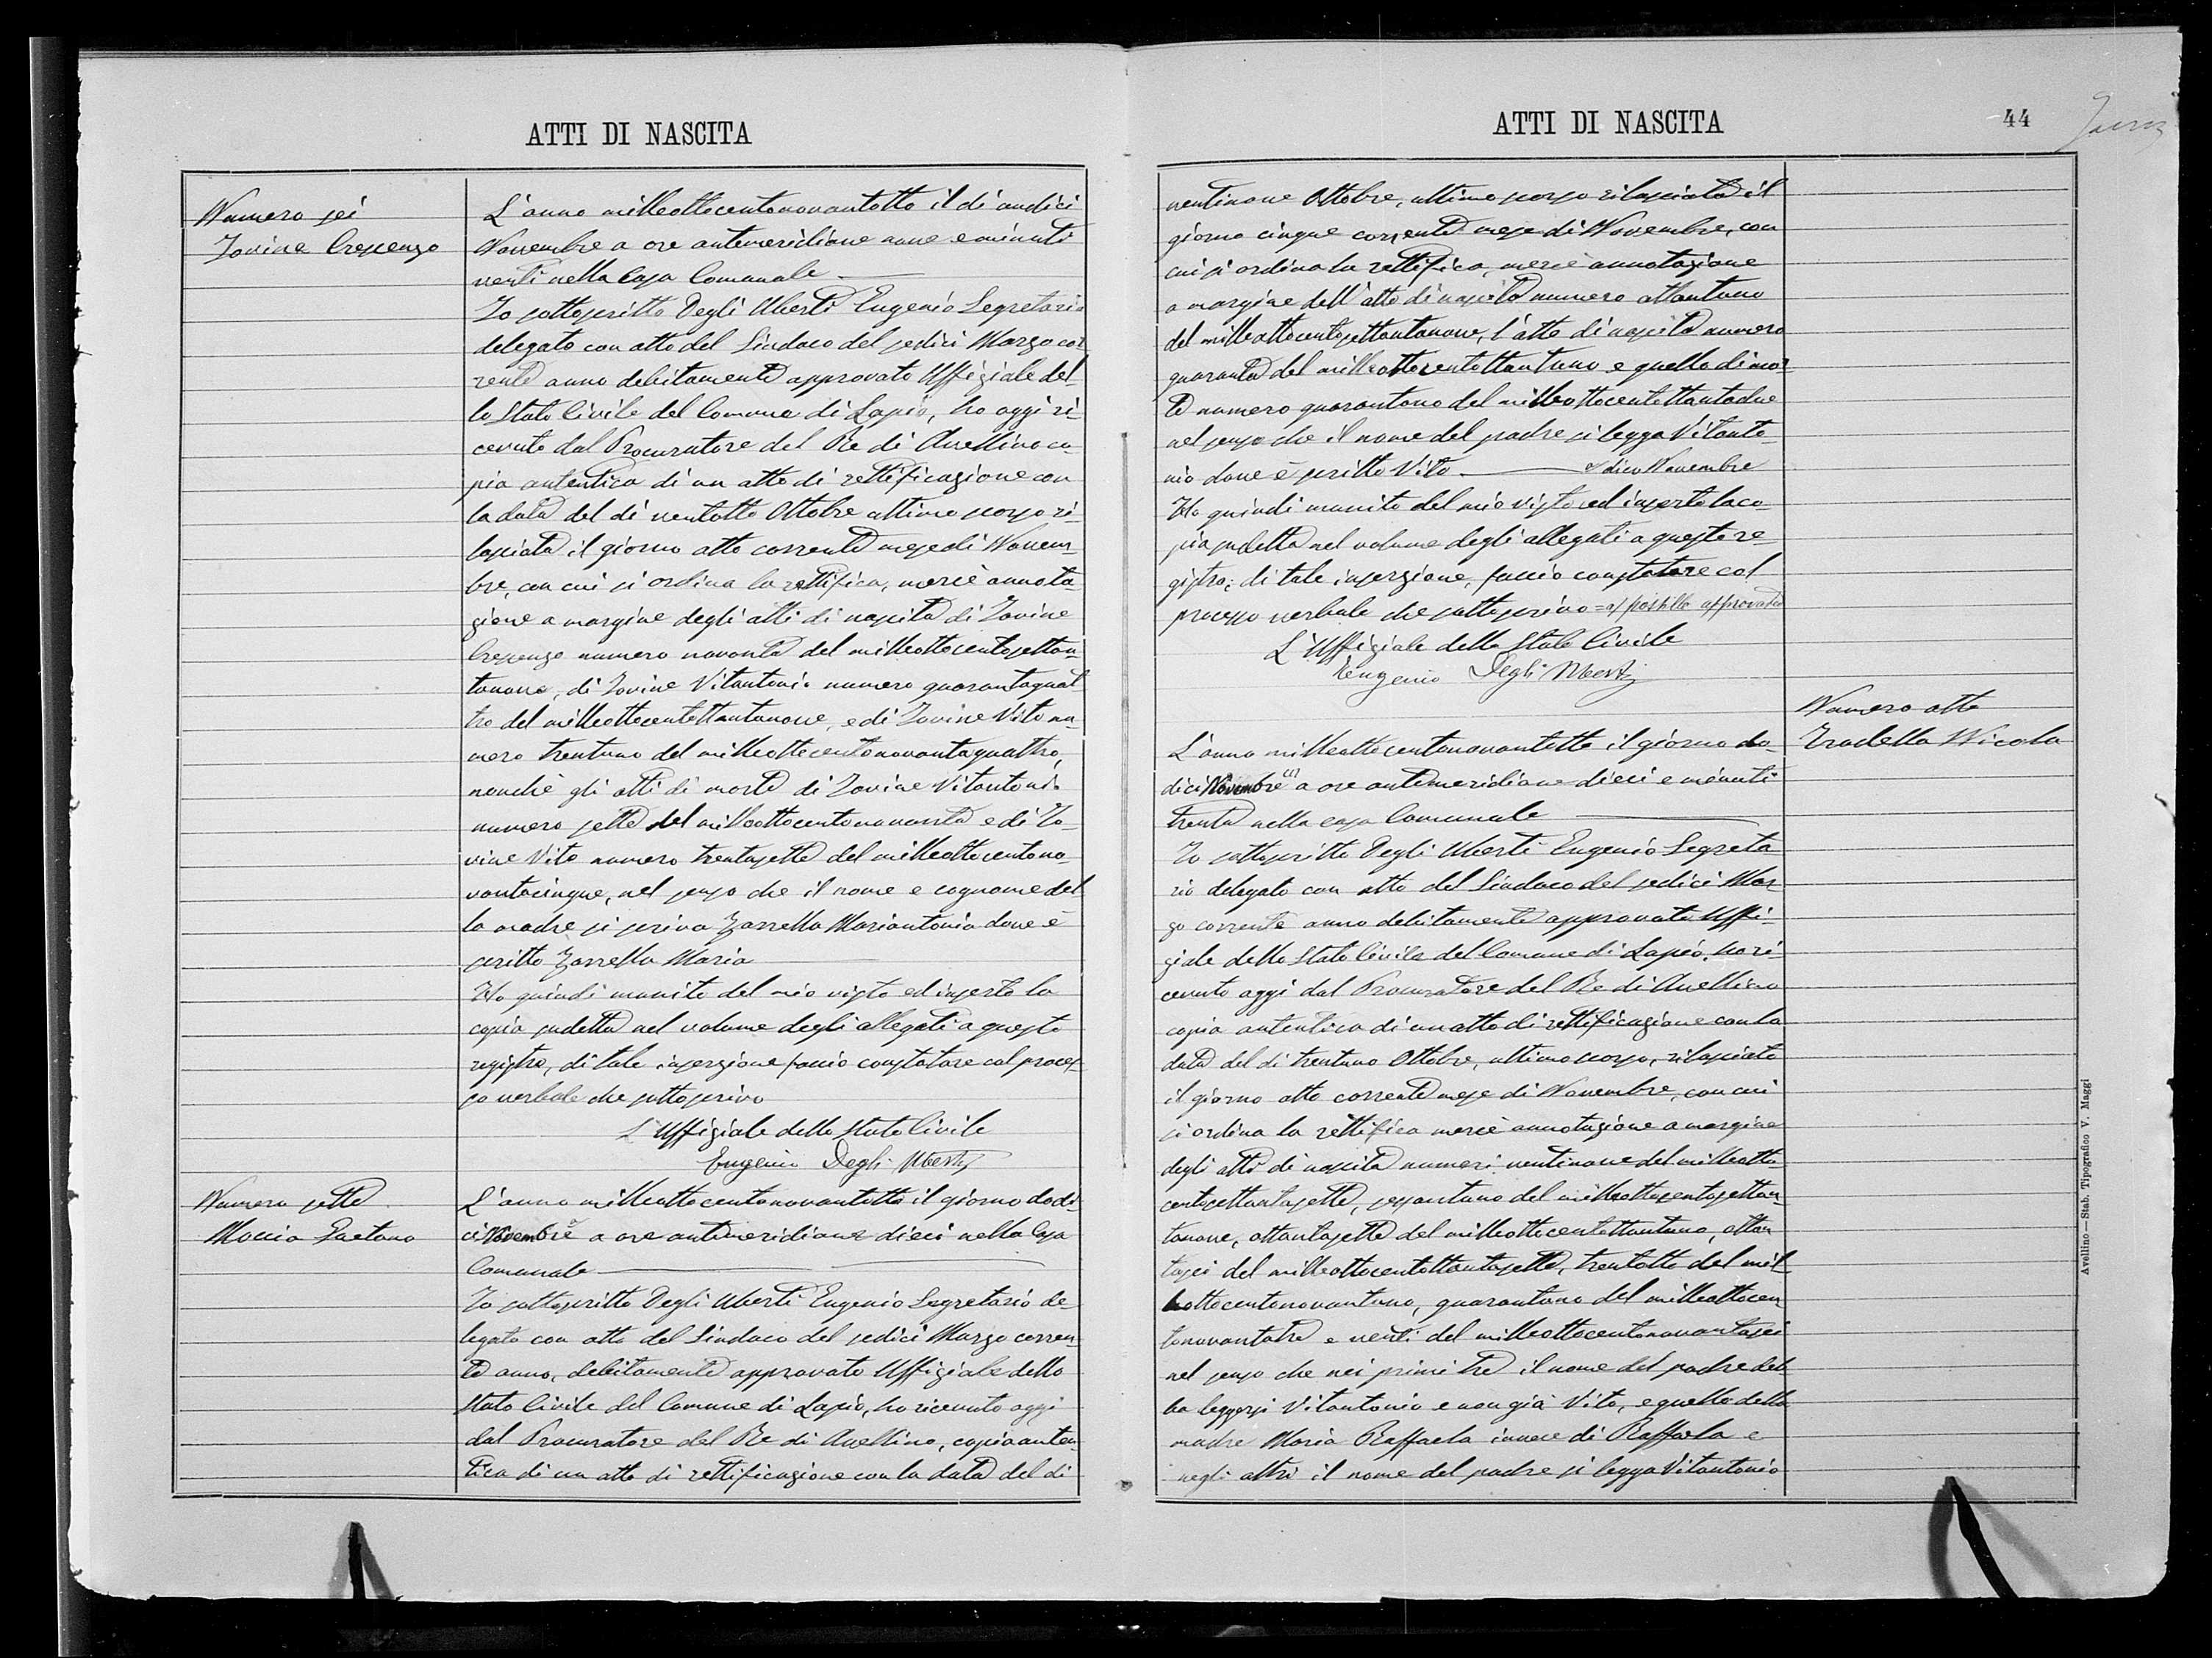 ATTI DI NASCITA
Numero sei
Iovine Crescenzo
L'anno milleottocentonovantotto il dì undici
Novembre a ore antimeridiane nove e minuti
venti nella Casa Comunale
Io sottoscritto Degli Uberti Eugenio Segretario
delegato con atto del Sindaco del sedici Marzo cor
rente anno debitamente approvato Uffiziale del
lo Stato Civile del Comune di Lapio, ho oggi ri-
cevuto dal Procuratore del Re di Avellino co-
pia autentica di un atto di rettificazione con
la data del dì ventotto Ottobre ultimo scorso ri-
lasciata il giorno otto corrente mese di Novem-
bre, con cui si ordina la rettifica, mercè annota-
zione a margine degli atti di nascita di Iovine
Crescenzo numero novanta del milleottocentosettan-
tanove, di Iovine Vitantonio numero quarantaquat
tro del milleottocentottantanove, e di Iovine Vito nu-
mero trentuno del milleottocentonovantaquattro,
nonchè gli atti di morte di Iovine Vitantonio
numero sette del milleottocentonovanta e di Io-
vine Vito numero trentasette del milleottocentono-
vantacinque, nel senso che il nome e cognome del
la madre si scriva Zarrella Mariantonia dove è
scritto Zarrella Maria
Ho quindi munito del mio visto ed inserto la
copia sudetta nel volume degli allegati a questo
registro, di tale inserzione faccio constatare col proces-
so verbale che sottoscrivo
L'Uffiziale dello Stato Civile
Eugenio Degli Uberti
Numero sette
Moccia Gaetano
L'anno milleottocentonovantotto il giorno dodi-
ci Novembre a ore antimeridiane dieci nella Casa
Comunale
Io sottoscritto Degli Uberti Eugenio Segretario de-
legato con atto del Sindaco del sedici Marzo corren-
te anno, debitamente approvato Uffiziale dello
Stato Civile del Comune di Lapio, ho ricevuto oggi
dal Procuratore del Re di Avellino, copia auten-
tica di un atto di rettificazione con la data del dì
ATTI DI NASCITA
44
ventinove Ottobre, ultimo scorso rilasciata il
giorno cinque corrente mese di Novembre, con
cui si ordina la rettifica, mercè annotazione
a margine dell'atto di nascita numero ottantuno
del milleottocentosettantanove, l'atto di nascita numero
quaranta del milleottocentottantuno e quello di mor-
te numero quarantuno del milleottocentottantadue
nel senso che il nome del padre si legga Vitanto-
nio dove è scritto Vito. dico Novembre
Ho quindi munito del mio visto ed inserto la co-
pia sudetta nel volume degli allegati a questo re-
gistro; di tale inserzione, faccio constatare col
processo verbale che sottoscrivo = postilla approvata
L'Uffiziale dello Stato Civile
Eugenio Degli Uberti
Numero otto
Iradella Nicola
L'anno milleottocentonovantotto il giorno do-
dici Novembre (1) a ore antimeridiane dieci e minuti
trenta nella casa Comunale
Io sottoscritto Degli Uberti Eugenio Segreta
rio delegato con atto del Sindaco del sedici Mar
zo corrente anno debitamente approvato Uffi-
ziale dello Stato Civile del Comune di Lapio, ho ri-
cevuto oggi dal Procuratore del Re di Avellino
copia autentica di un atto di rettificazione con la
data del dì trentuno Ottobre, ultimo scorso, rilasciato
il giorno otto corrente mese di Novembre, con cui
si ordina la rettifica mercè annotazione a margine
degli atti di nascita numeri ventinove del milleotto
centosettantasette, sessantuno del milleottocentosettan-
tanove, ottantasette del milleottocentottantuno, ottan
tasei del milleottocentottantasette, trentotto del mil-
leottocentonovantuno, quarantuno del milleottocen
tonovantatre e venti del milleottocentonovantasei
nel senso che nei primi tre il nome del padre deb-
ba leggersi Vitantonio e non già Vito, e quello della
madre Maria Raffaela invece di Raffaela e
negli altri il nome del padre si legga Vitantonio
Avellino — Stab. Tipografico V. Maggi